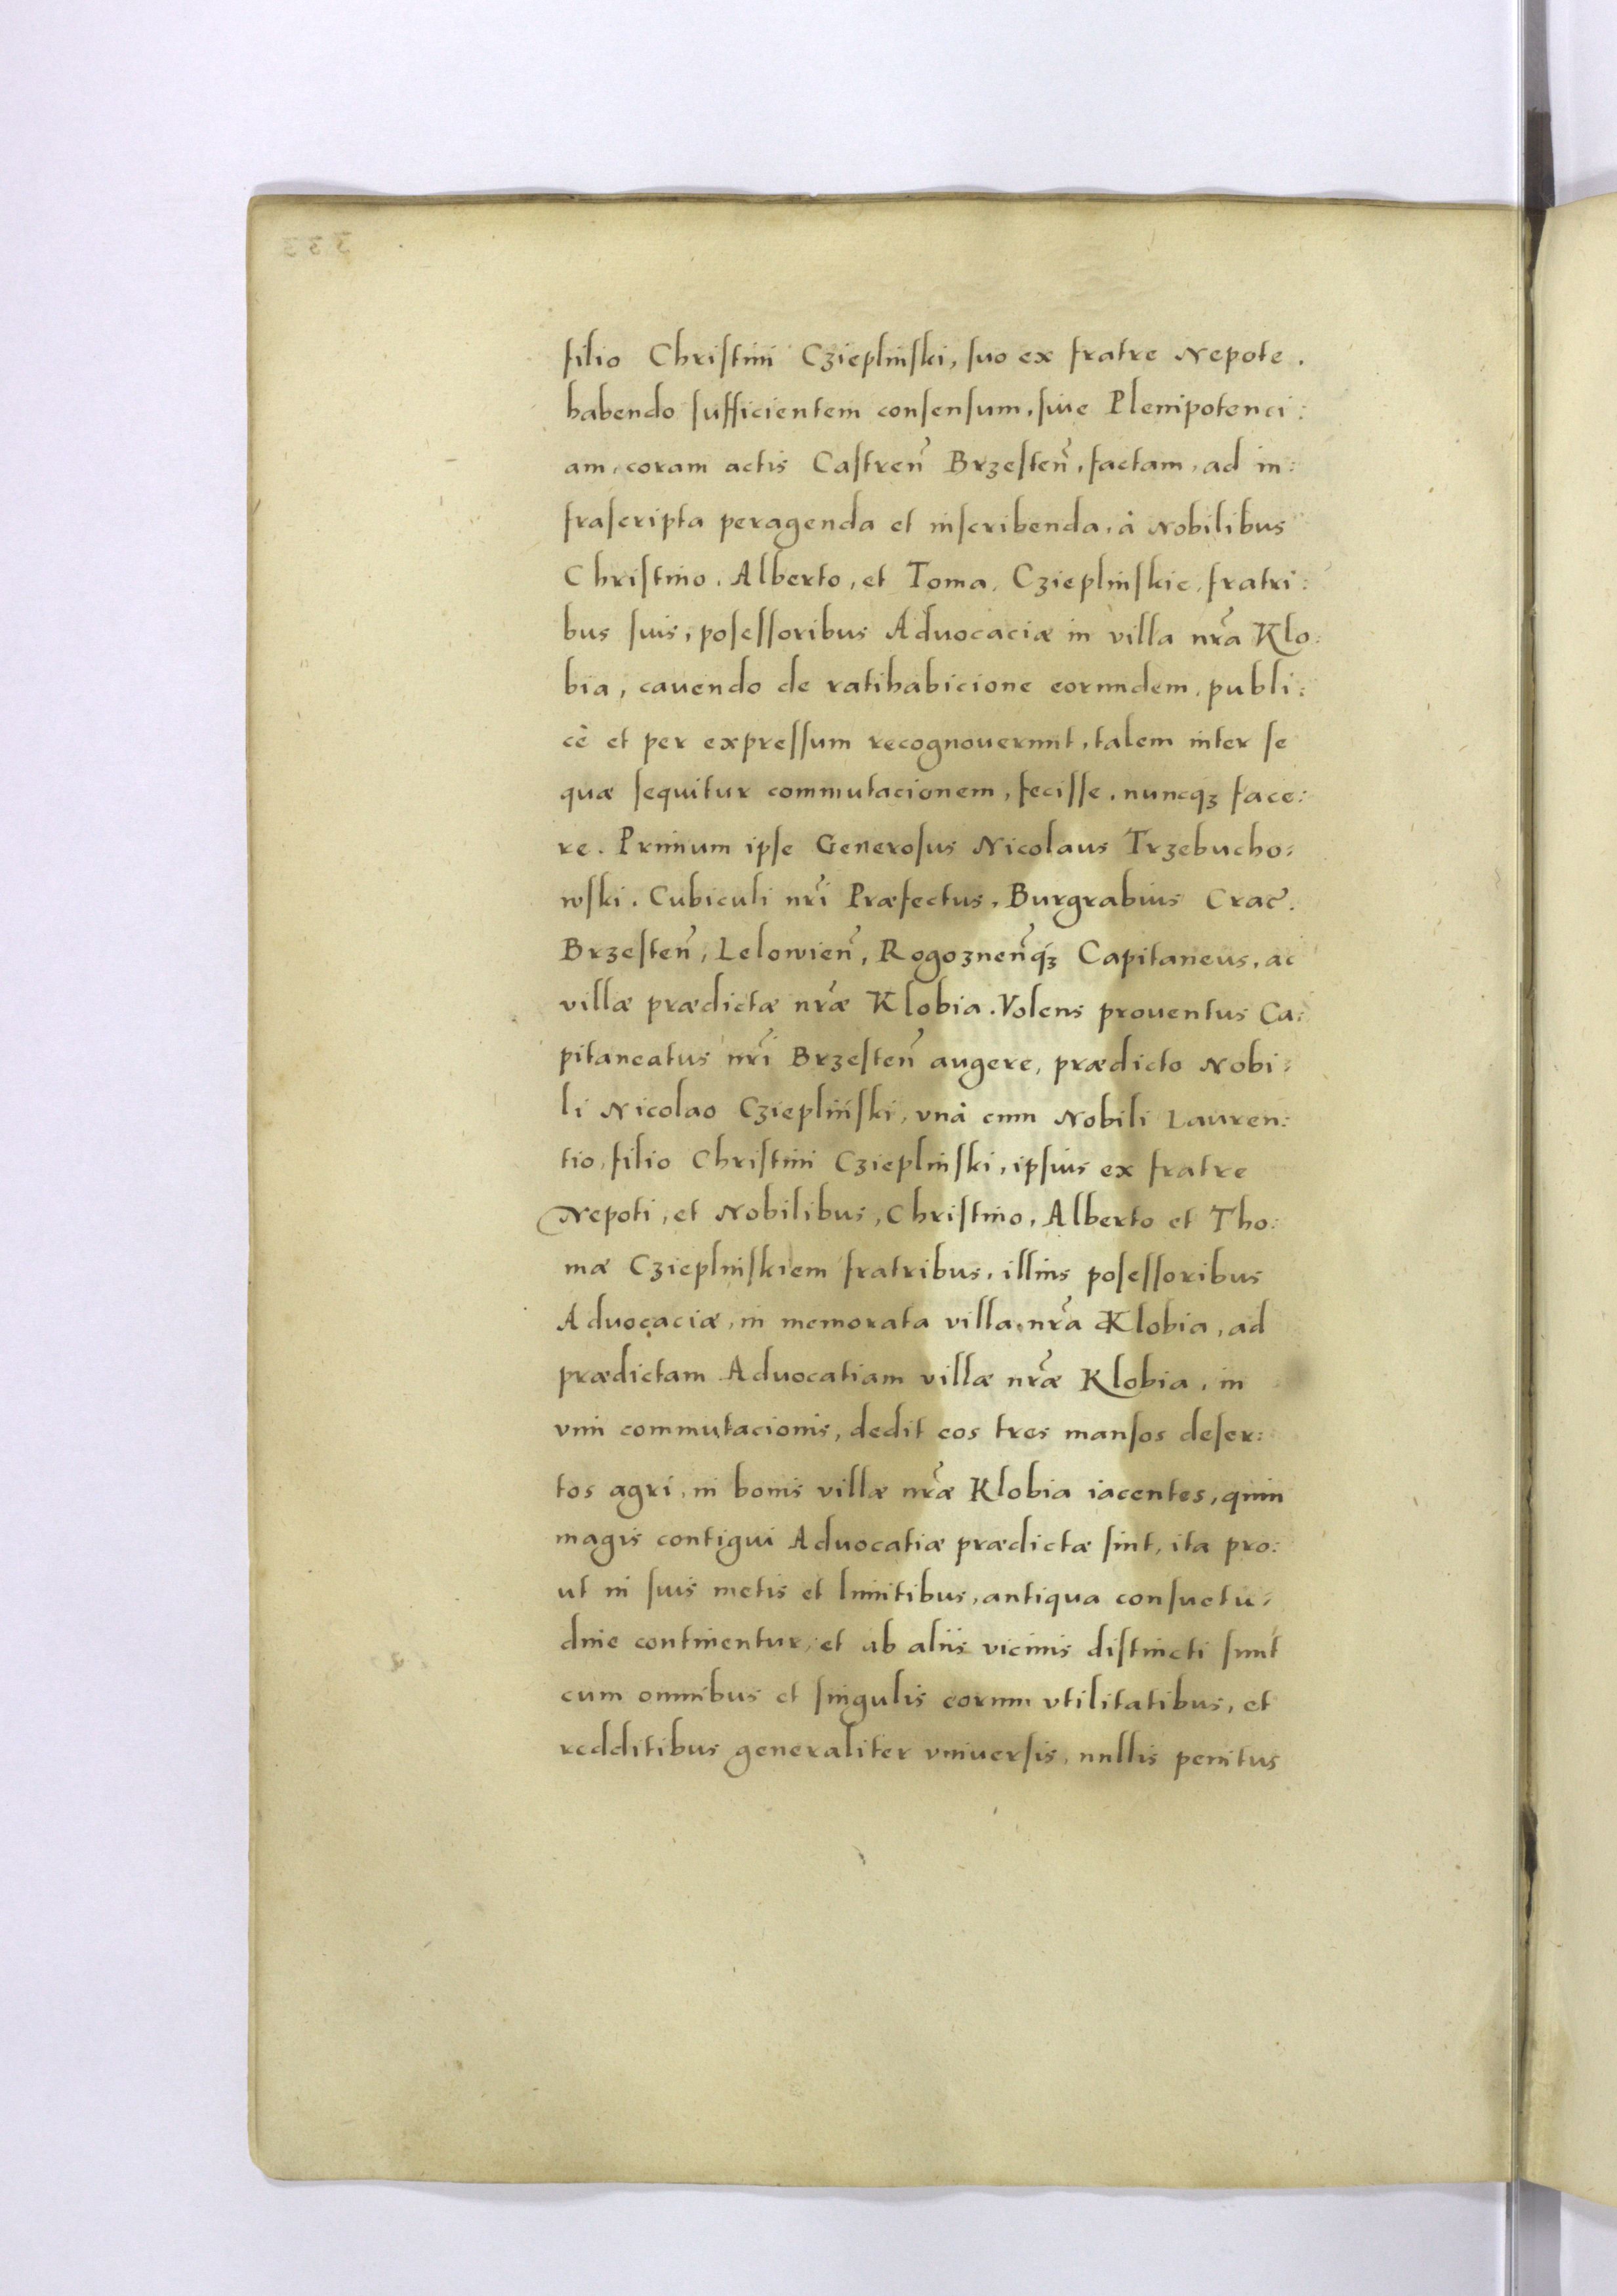 filio Christini Czieplinski, suo ex fratre Nepote.
habendo sufficientem consensum, siue Plenipotenci:
am, coram actis Castreñ Brzesteñ, factam, ad in:
frascripta peragenda et inscribenda, à Nobilibus
Christino, Alberto, et Toma, Czieplinskie, fratri:
bus suis, posessoribus Aduocaciæ in villa nr̃a Klo:
bia, cauendo de ratihabicione eorundem, publi:
cè et per expressum recognouerunt, talem inter se
quæ sequitur commutacionem, fecisse, nuncqꝫ face:
re. Primum ipse Generosus Nicolaus Trzebucho:
wski. Cubiculi nr̃i Præfectus, Burgrabius Crac̃.
Brzesteñ, Lelowieñ, Rogozneñqꝫ Capitaneus, ac
villæ prædictæ nr̃æ Klobia. Volens prouentus Ca:
pitaneatus nr̃i Brzesteñ augere, prædicto Nobi:
li Nicolao Czieplinski, vnà cum Nobili Lauren:
tio, filio Christini Czieplinski, ipsius ex fratre
Nepoti, et Nobilibus, Christino, Alberto et Tho:
mæ Czieplinskiem fratribus, illius posessoribus
Aduocaciæ, in memorata villa nr̃a Klobia, ad
prædictam Aduocatiam villæ nr̃æ Klobia, in
vim commutacionis, dedit eos tres mansos deser:
tos agri, in bonis villæ nr̃æ Klobia iacentes, quin
magis contigui Aduocatiæ prædictæ sint, ita pro:
ut in suis metis et limitibus, antiqua consuetu:
dine continentur, et ab aliis vicinis distincti sunt
cum omnibus et singulis eorum vtilitatibus, et
redditibus generaliter vniuersis, nullis penitus